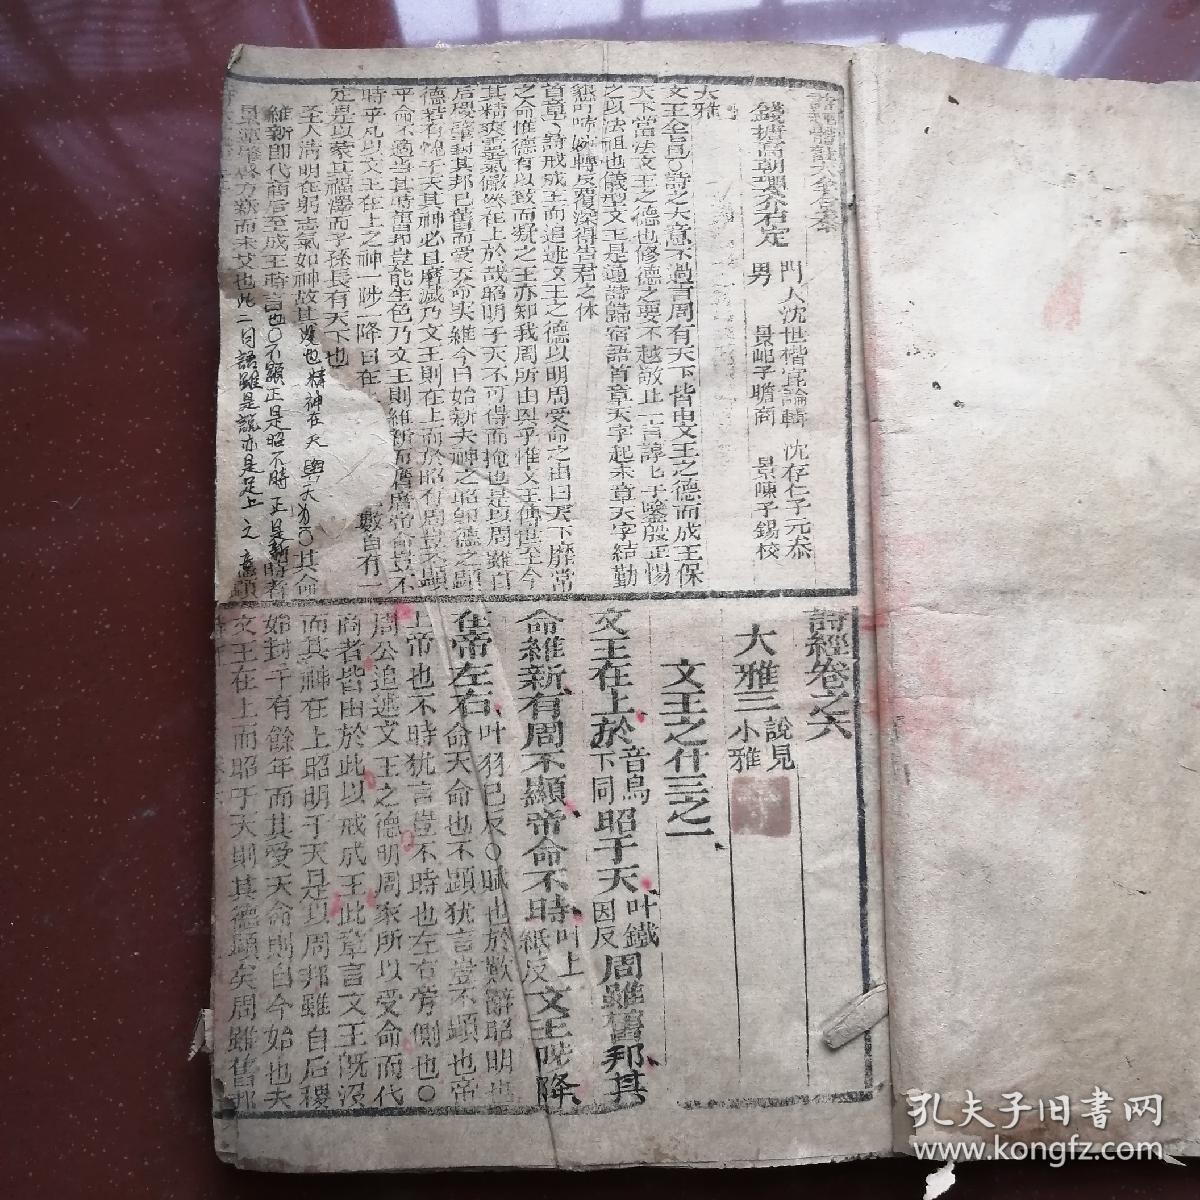 詩經體註大全合參
錢塘高朝瓔介石定 門人沈世楷宜論輯 沈存仁子元參
男 景屺子瞻商 景暕子錫校
大雅
文王全旨○詩之大意不過言周有天下皆由文王之德而成王保
天下當法文王之德也修德之要不越敬止一言諄諄于鑒殷正惕
之以法祖也儀型文王是通詩歸宿語首章天字起末章天字結勤
懇叮嚀婉轉反覆深得告君之体
首章、詩戒成王而追述文王之德以明周受命之由曰天下靡常
之命惟德有以致而凝之王亦知我周所由興乎惟文王傳世至今
其精爽靈氣儼然在上於哉昭明于天不可得而掩也是以周雖自
后稷肇封其邦已舊而受天命實維今日始新夫神之昭即德之顯
德若有歉于天其神必日磨滅乃文王則在上而於昭有周豈不顯
乎命不適當其時舊邦豈能生色乃文王則維新而膺
時乎凡以文王在上之神一陟一降日在
定是以蒙其福澤而子孫長有天下也
聖人清明在躬志氣如神故其
精神在天與天為一○其命
維新即代商后至成王時言也○不顯正是昭不時正是新
句語雖是說亦是足上之意
詩經卷之六
大雅三 說見小雅
文王之什三之一
文王在上於音烏下同昭于天叶鐵因反周雖舊邦其
命維新有周不顯帝命不時叶上紙反文王陟降
在帝左右叶羽已反○賦也於歎辭昭明也
命天命也不顯猶言豈不顯也帝
上帝也不時猶言豈不時也左右旁側也○
周公追述文王之德明周家所以受命而代
商者皆由於此以戒成王此章言文王既沒
而其神在上昭明于天是以周邦雖自后稷
始封千有餘年而其受天命則自今始也夫
文王在上而昭于天則其德顯矣周雖舊邦
孔夫子旧书网
www.kongfz.com